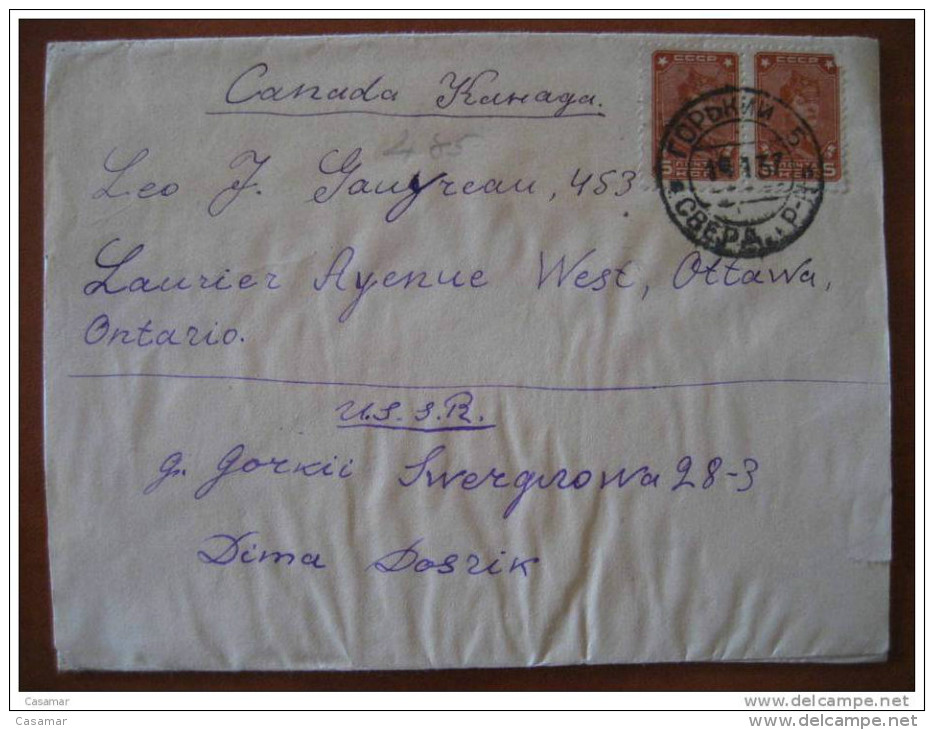 СССР СССР
Canada Канада.
485
ГОРЬКИЙ 5
5 5
СВЕРД. Р-Н
Leo J. Gauvreau, 453
Laurier Avenue West, Ottawa,
Ontario.
U.S.S.R.
g. Gorkii Swerdlowa 28-3
Dima
Casamar
Casamar
www.delcampe.net
www.delcampe.net